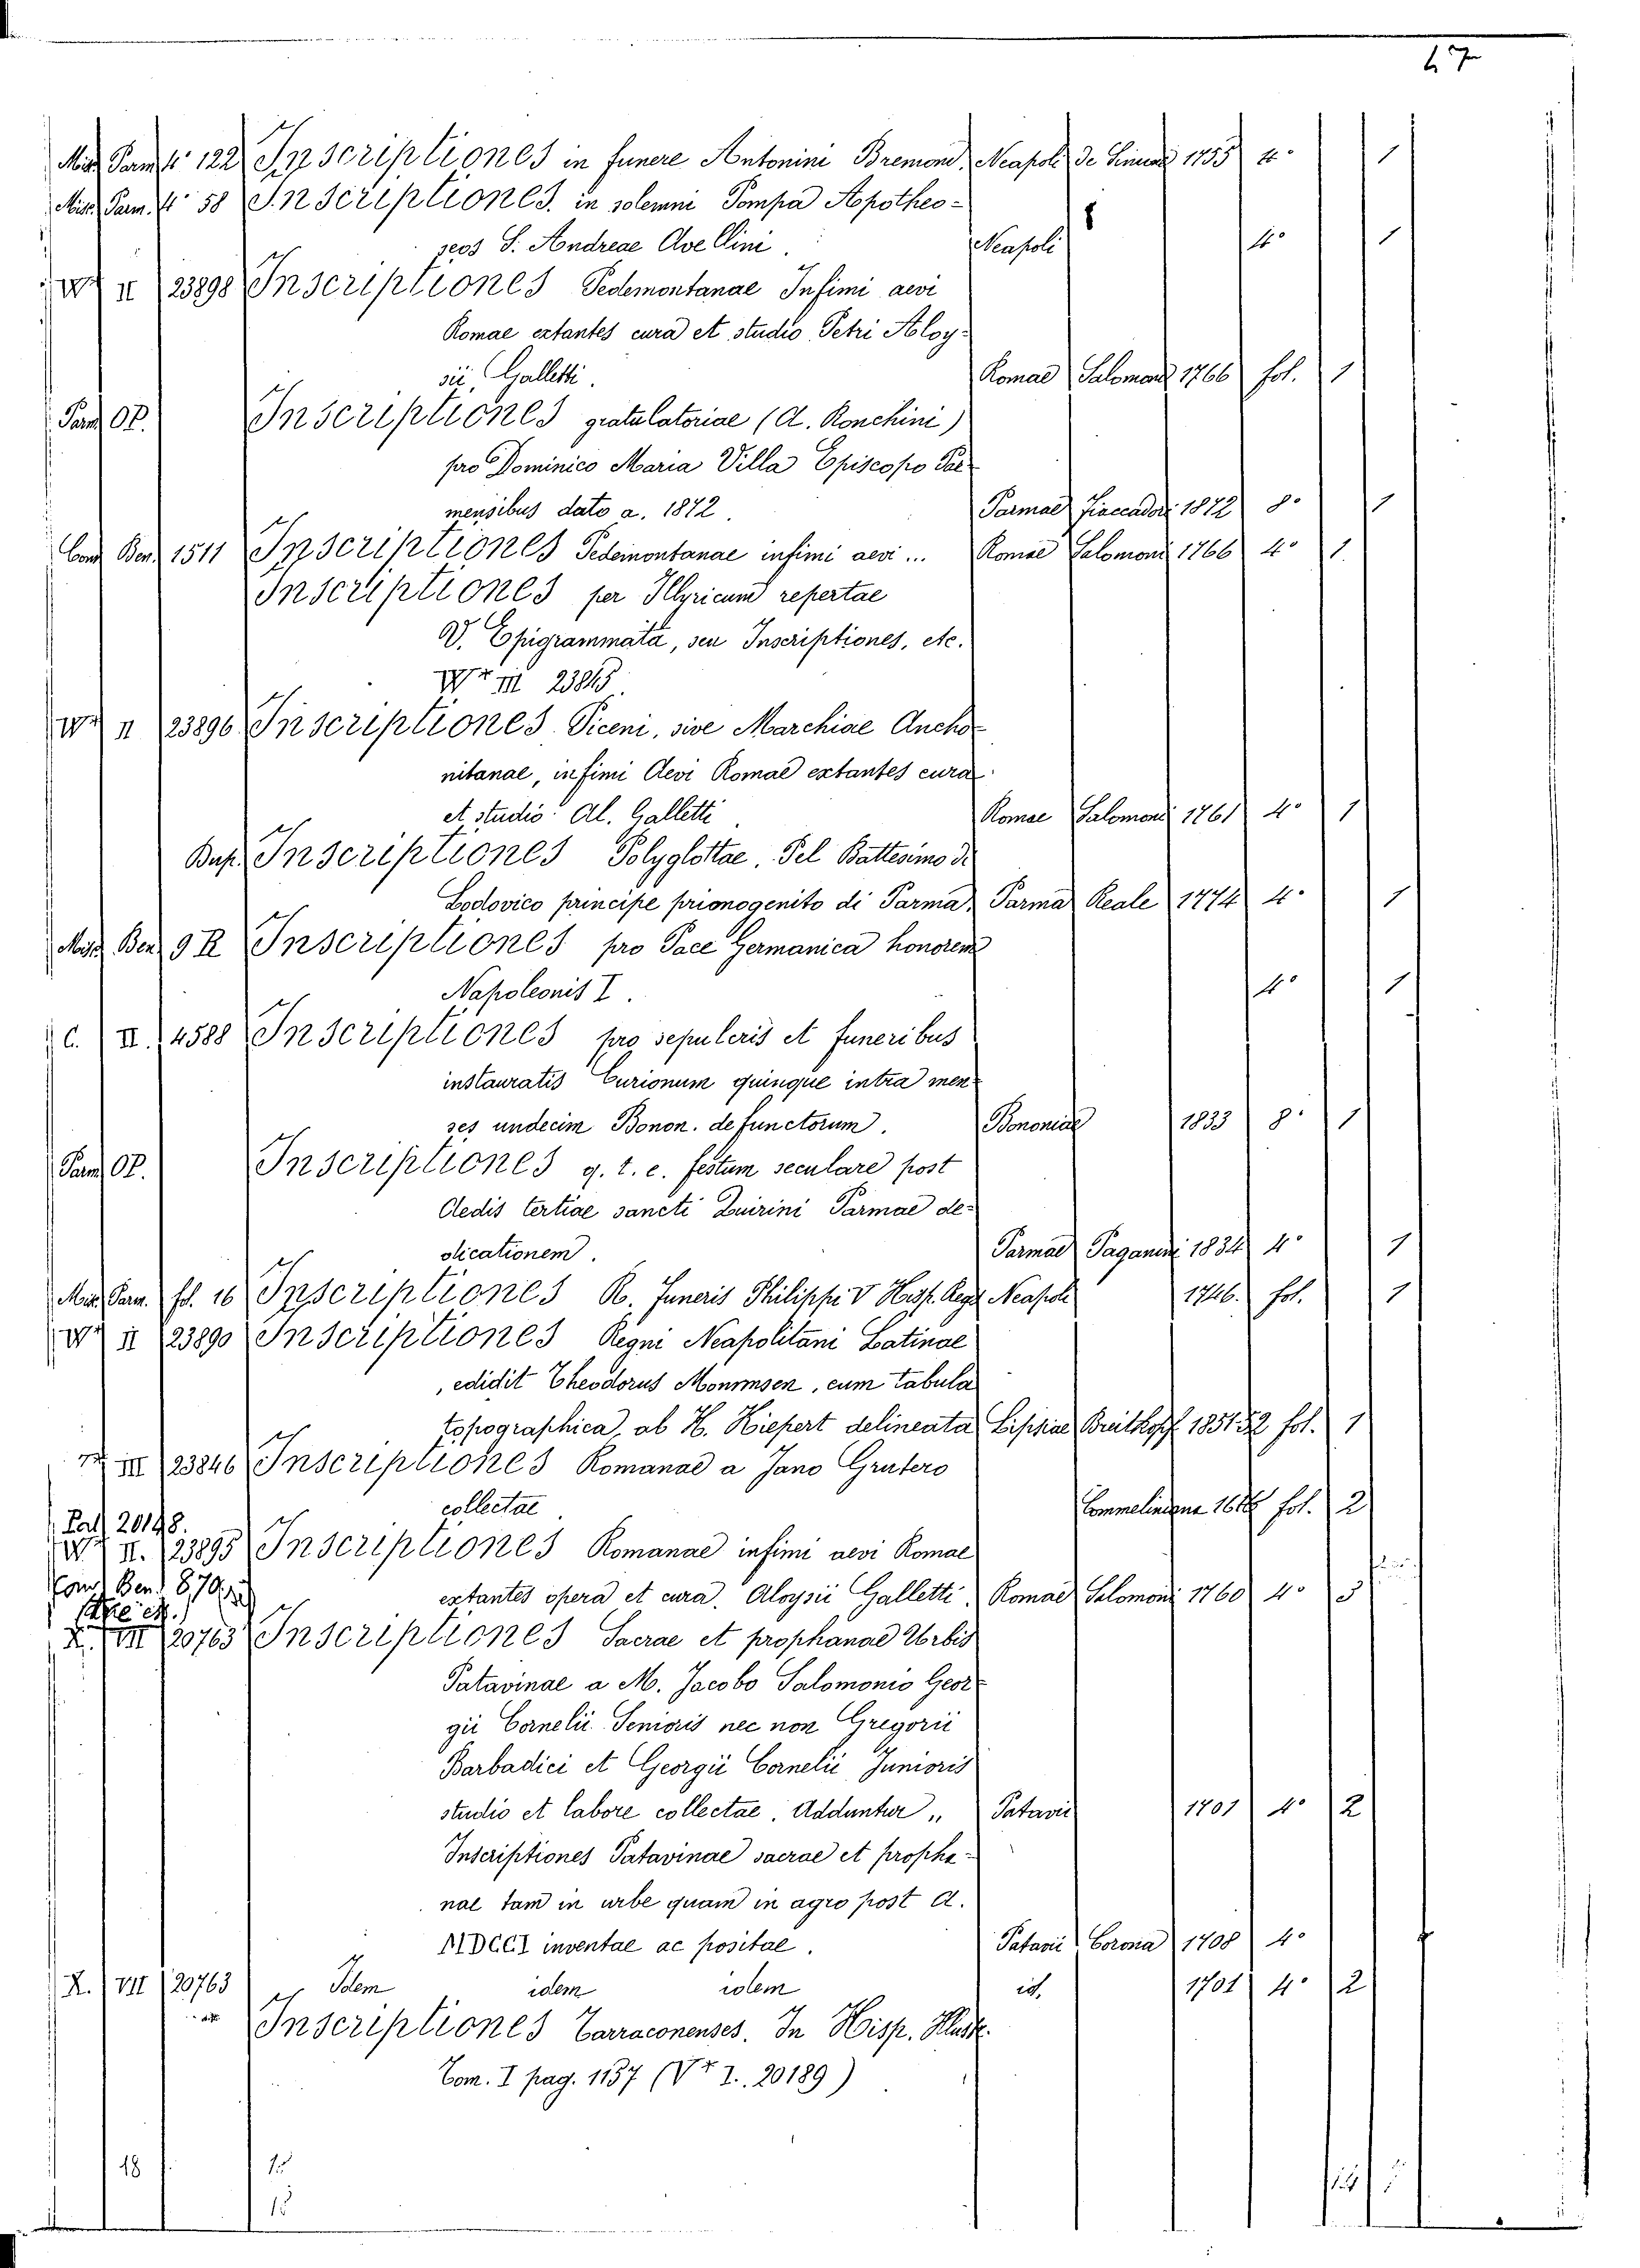 47
Misc. Parm. 4° 122 Inscriptiones in funere Antonini Bremond, Neapoli De Simone 1755 4° 1
Misc. Parm. 4° 58 Inscriptiones in solemni Pompa Apotheo-
seos S. Andreae Avellini. Neapoli 4° 1
II 23898 Inscriptiones Pedemontanae Infimi aevi
Romae extantes cura et studio Petri Aloy-
sii Galletti. Romae Salomoni 1766 fol. 1
Parm. OP. Inscriptiones gratulatoriae (A. Ronchini)
pro Dominico Maria Villa Episcopo Par-
mensibus dato a. 1872. Parmae Fiaccadori 1872 8° 1
Cond. Ben. 1511 Inscriptiones Pedemontanae infimi aevi ... Romae Salomoni 1766 4° 1
Inscriptiones per Illyricum repertae
V. Epigrammata, seu Inscriptiones, etc.
III 23865
II 23896 Inscriptiones Piceni, sive Marchiae Ancho-
nitanae, infimi Aevi Romae extantes cura
et studio Al. Galletti Romae Salomoni 1761 4° 1
Bup. Inscriptiones Polyglottae. Pel Battesimo di
Lodovico principe prionogenito di Parma. Parma Reale 1774 4° 1
Misc. Ben. 9 Inscriptiones pro Pace Germanica honorem
Napoleonis I. 4° 1
C. II. 4588 Inscriptiones pro sepulcris et funeribus
instauratis Curionum quinque intra men-
ses undecim Bonon. defunctorum. Bononiae 1833 8° 1
Parm. OP. Inscriptiones q. t. e. festum seculare post
Aedis tertiae sancti Quirini Parmae de-
dicationem. Parmae Paganini 1834 4° 1
Misc. Parm. fol. 16 Inscriptiones R. Funeris Philippi V Hisp. Regis Neapoli 1746. fol. 1
II 23890 Inscriptiones Regni Neapolitani Latinae
, edidit Theodorus Mommsen, cum tabula
topographica, ab H. Kiepert delineata Lipsiae Breitkopf 1851-52 fol. 1
III 23846 Inscriptiones Romanae a Jano Grutero
collectae Commeliniana 1616 fol. 2
Pal. 20148.
II. 23895 Inscriptiones Romanae infimi aevi Romae
Cond. Ben. 870
extantes opera et cura. Aloysii Galletti. Romae Salomoni 1760 4° 3
X. VII 20763 Inscriptiones Sacrae et prophanae Urbis
Patavinae a M. Jacobo Salomonio Geor-
gii Cornelii Senioris nec non Gregorii
Barbadici et Georgii Cornelii Junioris
studio et labore collectae. Adduntur „ Patavii 1701 4° 2
Inscriptiones Patavinae sacrae et propha-
nae tam in urbe quam in agro post A.
MDCCI inventae ac positae. Patavii Corona 1708 4°
X. VII 20763 Idem idem idem id. 1701 4° 2
Inscriptiones Tarraconenses. In Hisp. Illust.
Tom. I pag. 1137 (V I. 20189)
18 15
15